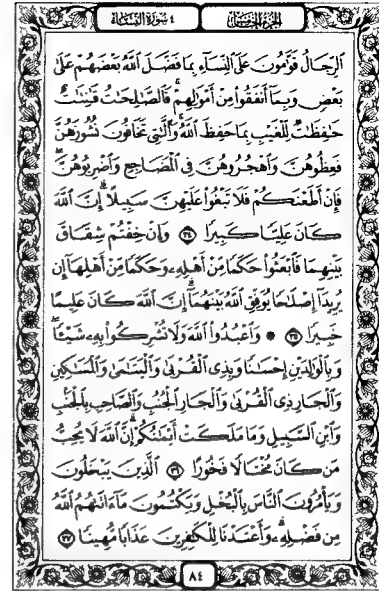 سورة النساء ٤
الجزء الخامس
ٱلرِّجَالُ قَوَّٰمُونَ عَلَى ٱلنِّسَآءِ بِمَا فَضَّلَ ٱللَّهُ بَعْضَهُمْ عَلَىٰ
بَعْضٍ وَبِمَآ أَنفَقُوا۟ مِنْ أَمْوَٰلِهِمْ ۚ فَٱلصَّٰلِحَٰتُ قَٰنِتَٰتٌ
حَٰفِظَٰتٌ لِّلْغَيْبِ بِمَا حَفِظَ ٱللَّهُ ۚ وَٱلَّٰتِى تَخَافُونَ نُشُوزَهُنَّ
فَعِظُوهُنَّ وَٱهْجُرُوهُنَّ فِى ٱلْمَضَاجِعِ وَٱضْرِبُوهُنَّ ۖ
فَإِنْ أَطَعْنَكُمْ فَلَا تَبْغُوا۟ عَلَيْهِنَّ سَبِيلًا ۗ إِنَّ ٱللَّهَ
كَانَ عَلِيًّا كَبِيرًا ٣٤ وَإِنْ خِفْتُمْ شِقَاقَ
بَيْنِهِمَا فَٱبْعَثُوا۟ حَكَمًا مِّنْ أَهْلِهِۦ وَحَكَمًا مِّنْ أَهْلِهَآ إِن
يُرِيدَآ إِصْلَٰحًا يُوَفِّقِ ٱللَّهُ بَيْنَهُمَآ ۗ إِنَّ ٱللَّهَ كَانَ عَلِيمًا
خَبِيرًا ٣٥ ۞ وَٱعْبُدُوا۟ ٱللَّهَ وَلَا تُشْرِكُوا۟ بِهِۦ شَيْـًٔا ۖ
وَبِٱلْوَٰلِدَيْنِ إِحْسَٰنًا وَبِذِى ٱلْقُرْبَىٰ وَٱلْيَتَٰمَىٰ وَٱلْمَسَٰكِينِ
وَٱلْجَارِ ذِى ٱلْقُرْبَىٰ وَٱلْجَارِ ٱلْجُنُبِ وَٱلصَّاحِبِ بِٱلْجَنۢبِ
وَٱبْنِ ٱلسَّبِيلِ وَمَا مَلَكَتْ أَيْمَٰنُكُمْ ۗ إِنَّ ٱللَّهَ لَا يُحِبُّ
مَن كَانَ مُخْتَالًا فَخُورًا ٣٦ ٱلَّذِينَ يَبْخَلُونَ
وَيَأْمُرُونَ ٱلنَّاسَ بِٱلْبُخْلِ وَيَكْتُمُونَ مَآ ءَاتَىٰهُمُ ٱللَّهُ
مِن فَضْلِهِۦ ۗ وَأَعْتَدْنَا لِلْكَٰفِرِينَ عَذَابًا مُّهِينًا ٣٧
٨٤